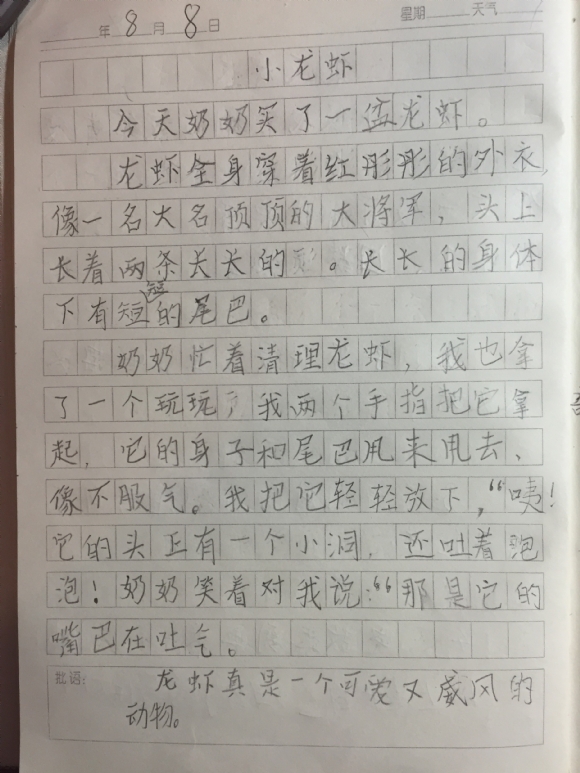 年 8 月 8 日 星期 天气
小龙虾
今天奶奶买了一盆龙虾。
龙虾全身穿着红彤彤的外衣,
像一名大名顶顶的大将军,头上
长着两条长长的 。长长的身体
下有短短的尾巴。
奶奶忙着清理龙虾,我也拿
了一个玩玩,我两个手指把它拿
起,它的身子和尾巴甩来甩去、
像不服气。我把它轻轻放下,“咦!
它的头上有一个小洞,还吐着泡
泡!奶奶笑着对我说:“那是它的
嘴巴在吐气。
批语: 龙虾真是一个可爱又威风的
动物。